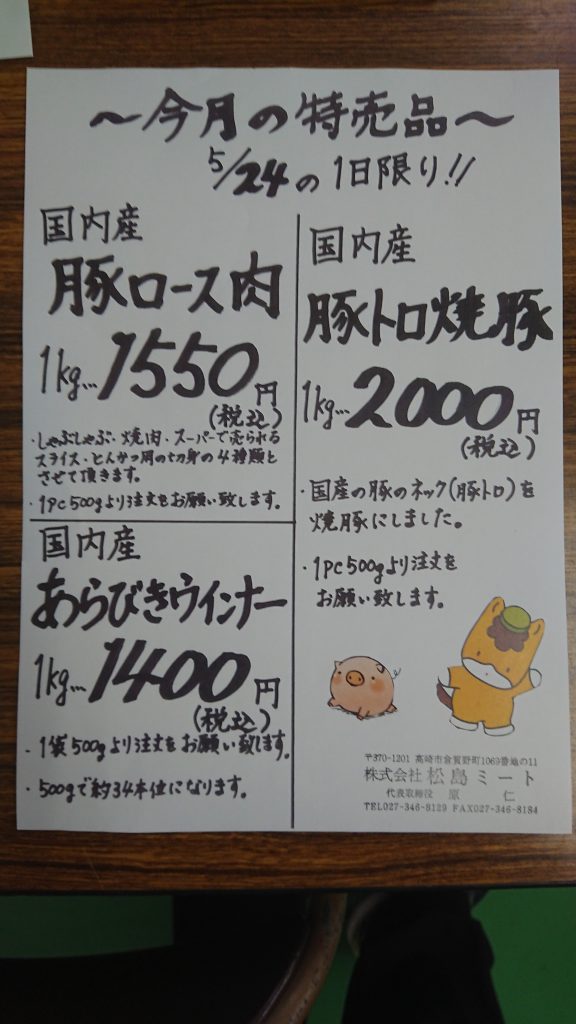 ～今月の特売品～
5/24の1日限り!!
国内産
豚ロース肉
1kg…1550円
(税込)
・しゃぶしゃぶ・焼肉・スーパーで売られる
スライス・とんかつ用の切身の4種類と
させて頂きます。
・1pc500gより注文をお願い致します。
国内産
あらびきウインナー
1kg…1400円
(税込)
・1袋500gより注文をお願い致します。
・500gで約34本位になります。
国内産
豚トロ焼豚
1kg…2000円
(税込)
・国産の豚のネック(豚トロ)を
焼豚にしました。
・1pc500gより注文を
お願い致します。
〒370-1201 高崎市倉賀野町1069番地の11
株式会社 松島ミート
代表取締役 原 仁
TEL027-346-8129 FAX027-346-8184